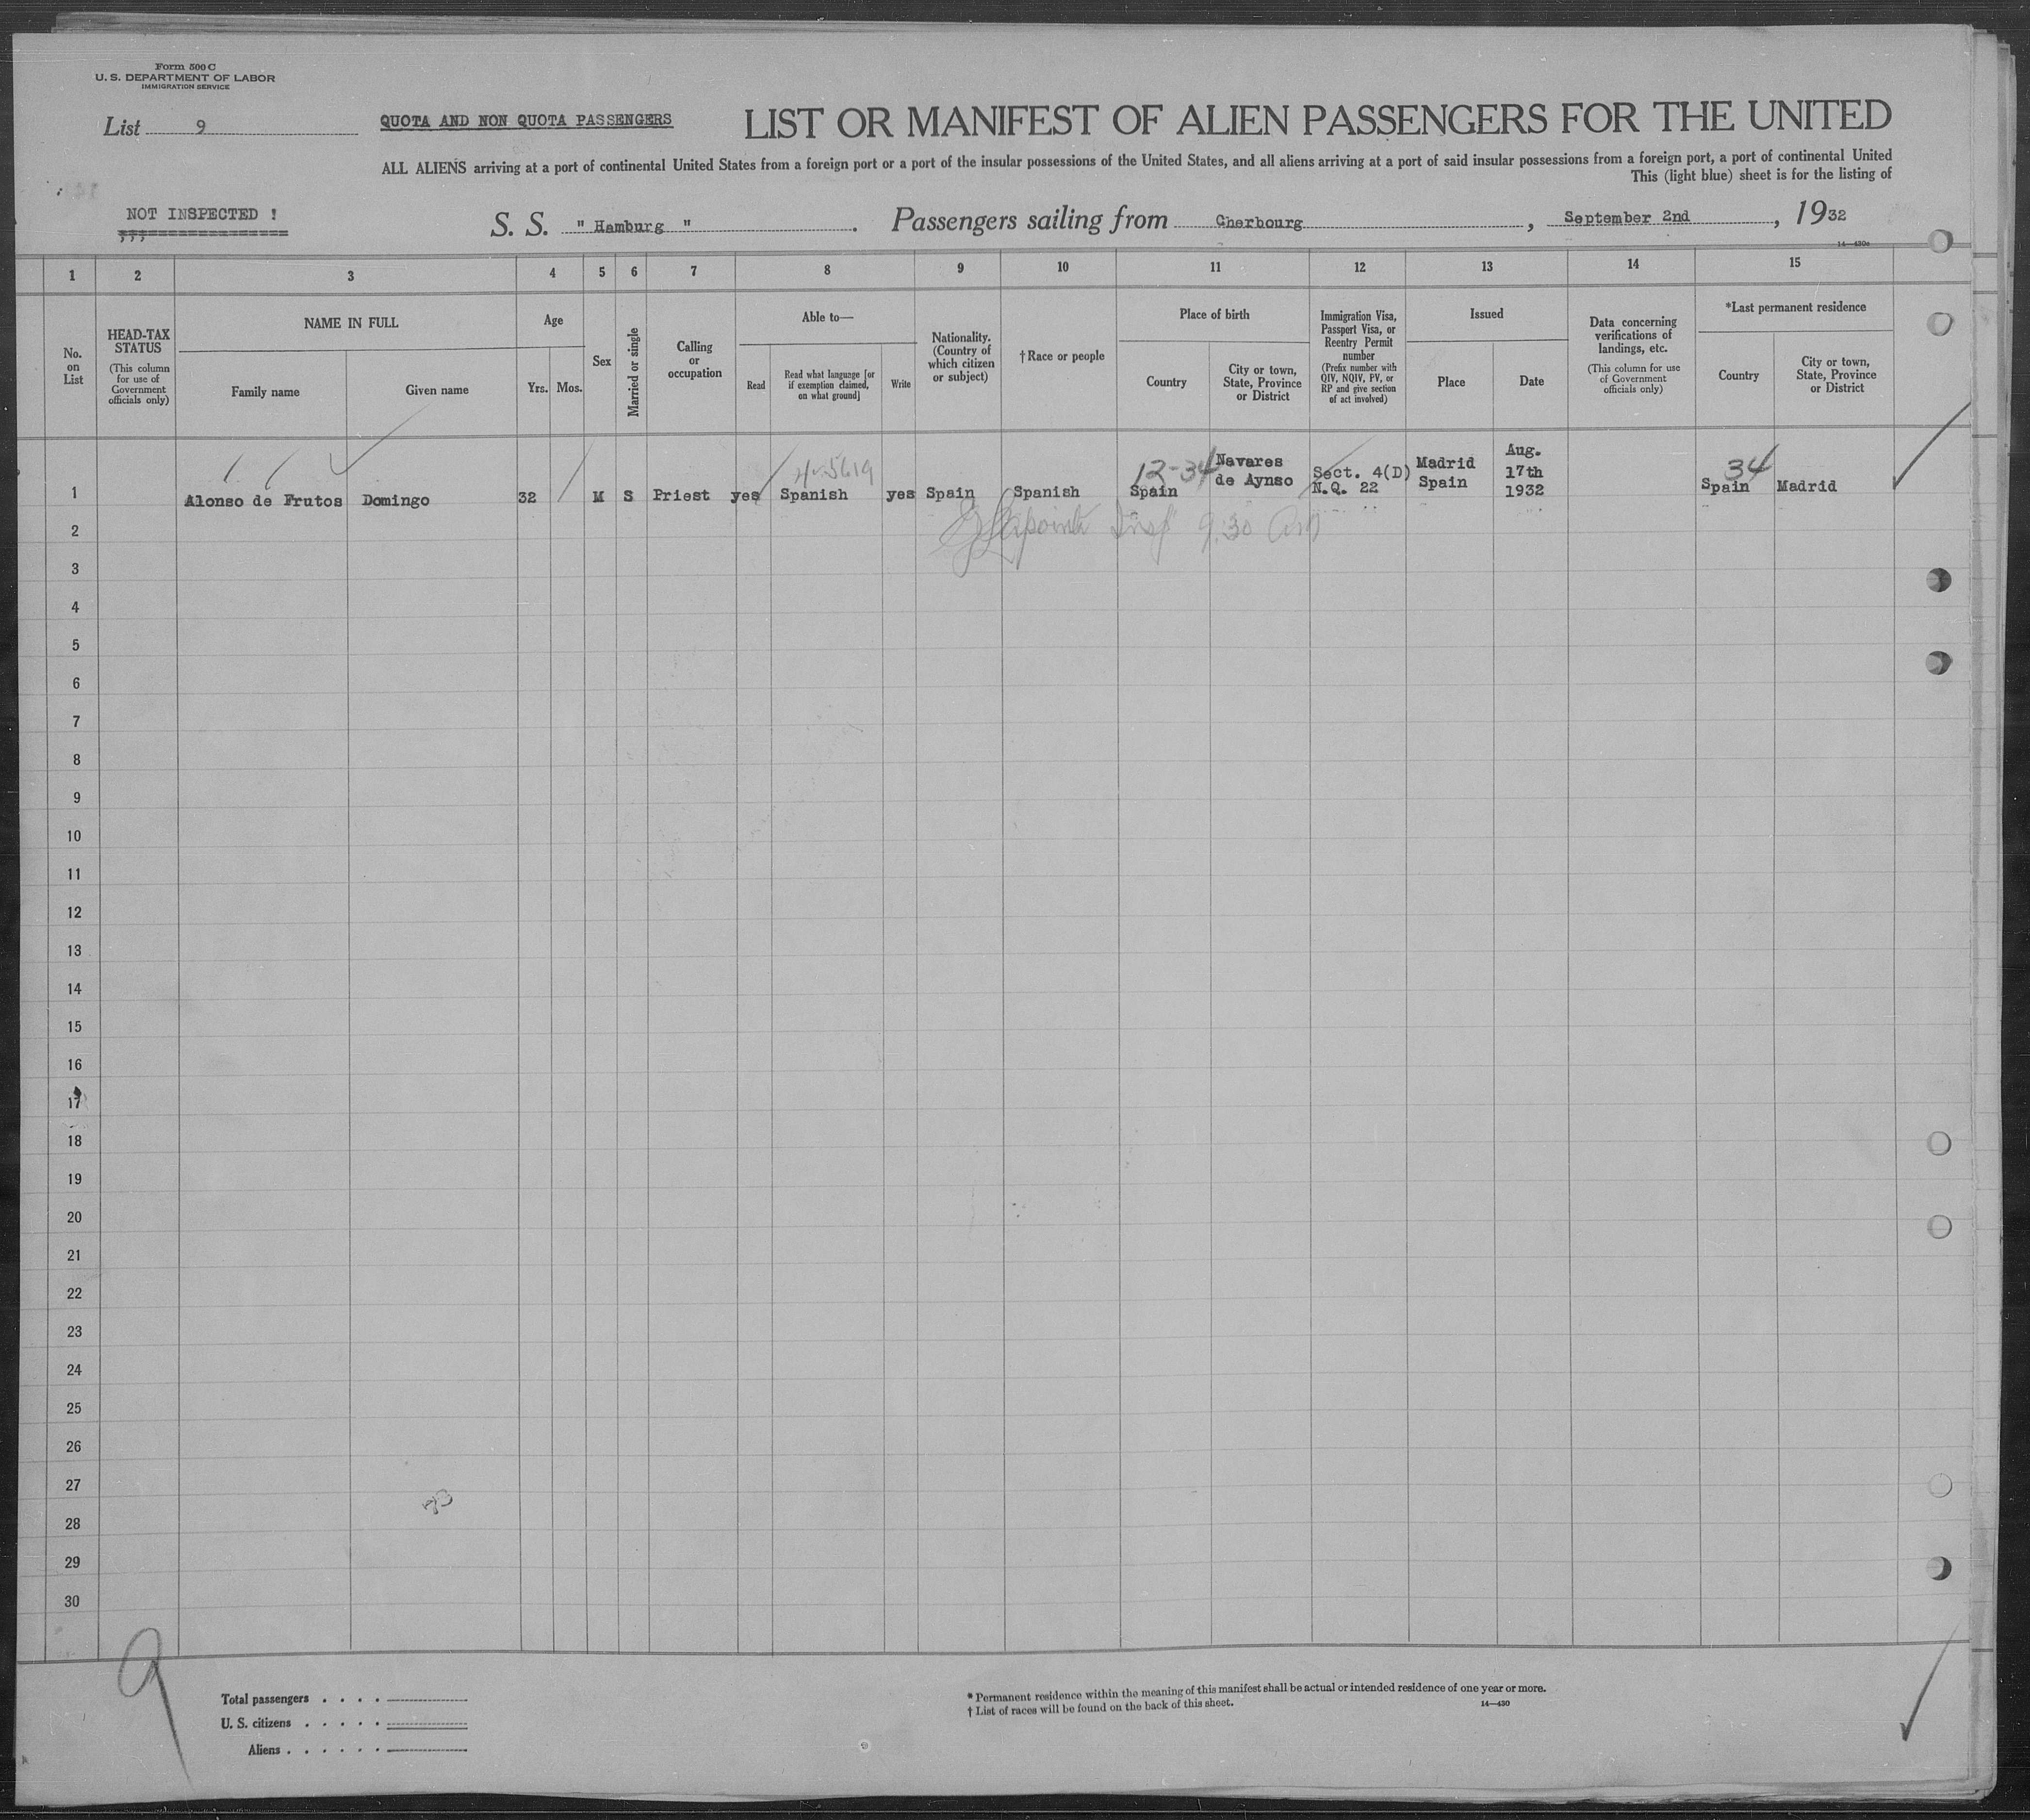 Form 500 C
U. S. DEPARTMENT OF LABOR
IMMIGRATION SERVICE
List 9
QUOTA AND NON QUOTA PASSENGERS
LIST OR MANIFEST OF ALIEN PASSENGERS FOR THE UNITED
ALL ALIENS arriving at a port of continental United States from a foreign port or a port of the insular possessions of the United States, and all aliens arriving at a port of said insular possessions from a foreign port, a port of continental United
This (light blue) sheet is for the listing of
NOT INSPECTED !
S. S. " Hamburg " . Passengers sailing from Cherbourg , September 2nd , 1932
14—430a
1 2 3 4 5 6 7 8 9 10 11 12 13 14 15
No. on List
HEAD-TAX STATUS
(This column for use of Government officials only)
NAME IN FULL
Family name
Given name
Age
Yrs. Mos.
Sex
Married or single
Calling or occupation
Able to—
Read
Read what language [or if exemption claimed, on what ground]
Write
Nationality. (Country of which citizen or subject)
†Race or people
Place of birth
Country
City or town, State, Province or District
Immigration Visa, Passport Visa, or Reentry Permit number
(Prefix number with QIV, NQIV, PV, or RP and give section of act involved)
Issued
Place
Date
Data concerning verifications of landings, etc.
(This column for use of Government officials only)
*Last permanent residence
Country
City or town, State, Province or District
1 Alonso de Frutos Domingo 32 M S Priest yes Spanish yes Spain Spanish Spain Navares de Aynso Sect. 4(D) N.Q. 22 Madrid Spain Aug. 17th 1932 Spain Madrid
12-34
34
Insp 9:30 AM
2
3
4
5
6
7
8
9
10
11
12
13
14
15
16
17
18
19
20
21
22
23
24
25
26
27
28
29
30
9
Total passengers . . . .
U. S. citizens . . . . .
Aliens . . . . . .
* Permanent residence within the meaning of this manifest shall be actual or intended residence of one year or more.
† List of races will be found on the back of this sheet.
14—430